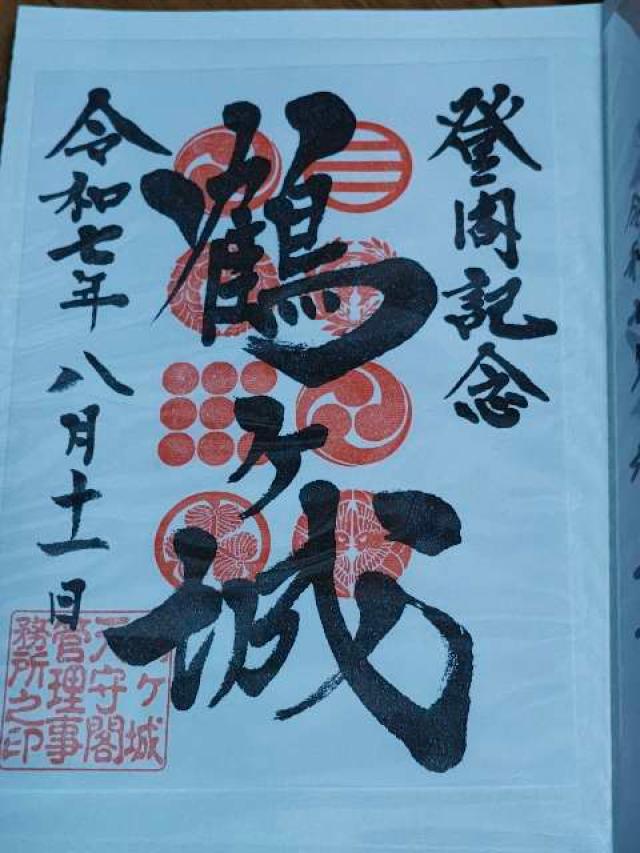 登閣記念
鶴ヶ城
令和七年 八月十一日
ヶ城
天守閣
管理事
務所之印